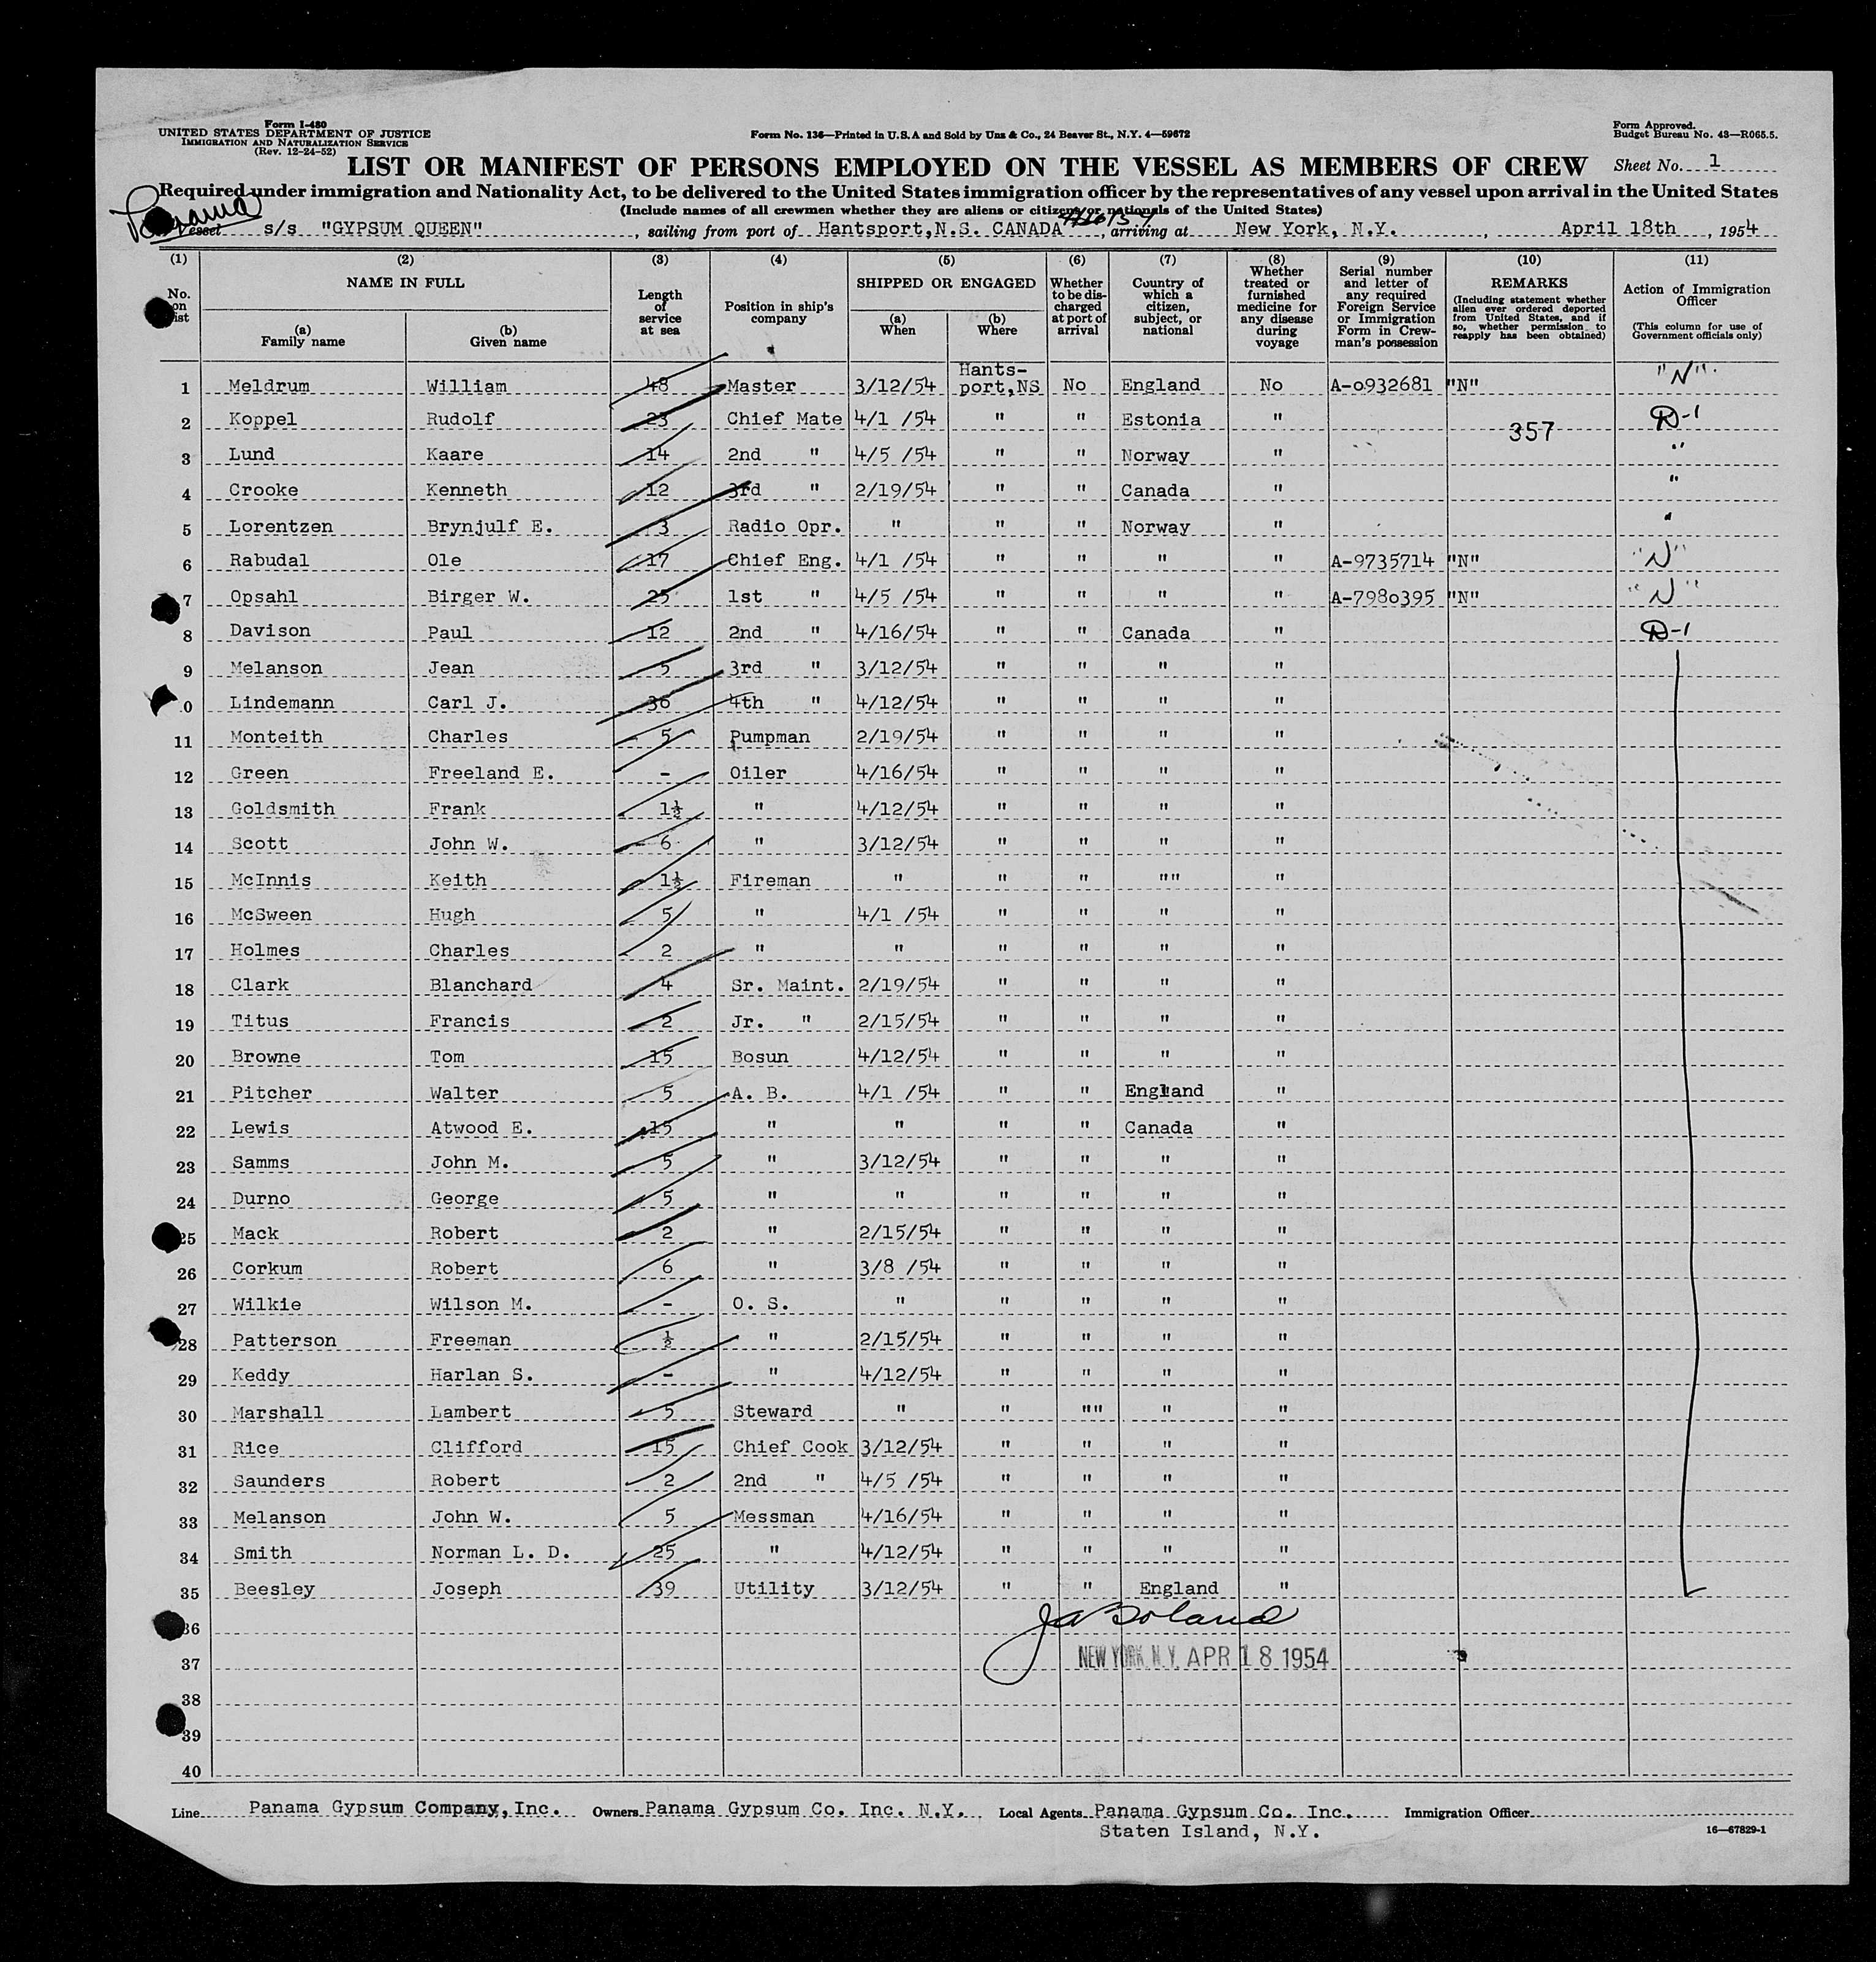 Form I-480
UNITED STATES DEPARTMENT OF JUSTICE
IMMIGRATION AND NATURALIZATION SERVICE
(Rev. 12-24-52)
Form No. 136—Printed in U.S.A and Sold by Unz & Co., 24 Beaver St., N.Y. 4—59672
Form Approved.
Budget Bureau No. 43—R065.5.
LIST OR MANIFEST OF PERSONS EMPLOYED ON THE VESSEL AS MEMBERS OF CREW
Sheet No. 1
Required under immigration and Nationality Act, to be delivered to the United States immigration officer by the representatives of any vessel upon arrival in the United States
(Include names of all crewmen whether they are aliens or citizens or nationals of the United States)
Panama
Vessel s/s "GYPSUM QUEEN", sailing from port of Hantsport,N.S. CANADA, arriving at New York, N.Y., April 18th, 1954
(1) (2) (3) (4) (5) (6) (7) (8) (9) (10) (11)
No. on list
NAME IN FULL
(a) Family name
(b) Given name
Length of service at sea
Position in ship's company
SHIPPED OR ENGAGED
(a) When
(b) Where
Whether to be discharged at port of arrival
Country of which a citizen, subject, or national
Whether treated or furnished medicine for any disease during voyage
Serial number and letter of any required Foreign Service or Immigration Form in Crewman's possession
REMARKS
(Including statement whether alien ever ordered deported from United States, and if so, whether permission to reapply has been obtained)
Action of Immigration Officer
(This column for use of Government officials only)
1 Meldrum William 48 Master 3/12/54 Hantsport,NS No England No A-0932681 "N" "N"
2 Koppel Rudolf 23 Chief Mate 4/1 /54 " " Estonia " 357 D-1
3 Lund Kaare 14 2nd " 4/5 /54 " " Norway " "
4 Crooke Kenneth 12 3rd " 2/19/54 " " Canada " "
5 Lorentzen Brynjulf E. 3 Radio Opr. " " " Norway " "
6 Rabudal Ole 17 Chief Eng. 4/1 /54 " " " " A-9735714 "N" "N"
7 Opsahl Birger W. 25 1st " 4/5 /54 " " " " A-7980395 "N" "N"
8 Davison Paul 12 2nd " 4/16/54 " " Canada " D-1
9 Melanson Jean 5 3rd " 3/12/54 " " " "
0 Lindemann Carl J. 36 4th " 4/12/54 " " " "
11 Monteith Charles 5 Pumpman 2/19/54 " " " "
12 Green Freeland E. - Oiler 4/16/54 " " " "
13 Goldsmith Frank 1½ " 4/12/54 " " " "
14 Scott John W. 6 " 3/12/54 " " " "
15 McInnis Keith 1½ Fireman " " " "" "
16 McSween Hugh 5 " 4/1 /54 " " " "
17 Holmes Charles 2 " " " " " "
18 Clark Blanchard 4 Sr. Maint. 2/19/54 " " " "
19 Titus Francis 2 Jr. " 2/15/54 " " " "
20 Browne Tom 15 Bosun 4/12/54 " " " "
21 Pitcher Walter 5 A. B. 4/1 /54 " " England "
22 Lewis Atwood E. 15 " " " " Canada "
23 Samms John M. 5 " 3/12/54 " " " "
24 Durno George 5 " " " " " "
25 Mack Robert 2 " 2/15/54 " " " "
26 Corkum Robert 6 " 3/8 /54 " " " "
27 Wilkie Wilson M. - O. S. " " " " "
28 Patterson Freeman ½ " 2/15/54 " " " "
29 Keddy Harlan S. - " 4/12/54 " " " "
30 Marshall Lambert 5 Steward " " "" " "
31 Rice Clifford 15 Chief Cook 3/12/54 " " " "
32 Saunders Robert 2 2nd " 4/5 /54 " " " "
33 Melanson John W. 5 Messman 4/16/54 " " " "
34 Smith Norman L. D. 25 " 4/12/54 " " " "
35 Beesley Joseph 39 Utility 3/12/54 " " England "
36 J A Boland
37 NEW YORK N.Y. APR 18 1954
38
39
40
Line Panama Gypsum Company, Inc. Owners Panama Gypsum Co. Inc. N.Y. Local Agents Panama Gypsum Co. Inc. Immigration Officer
Staten Island, N.Y.
16—67829-1